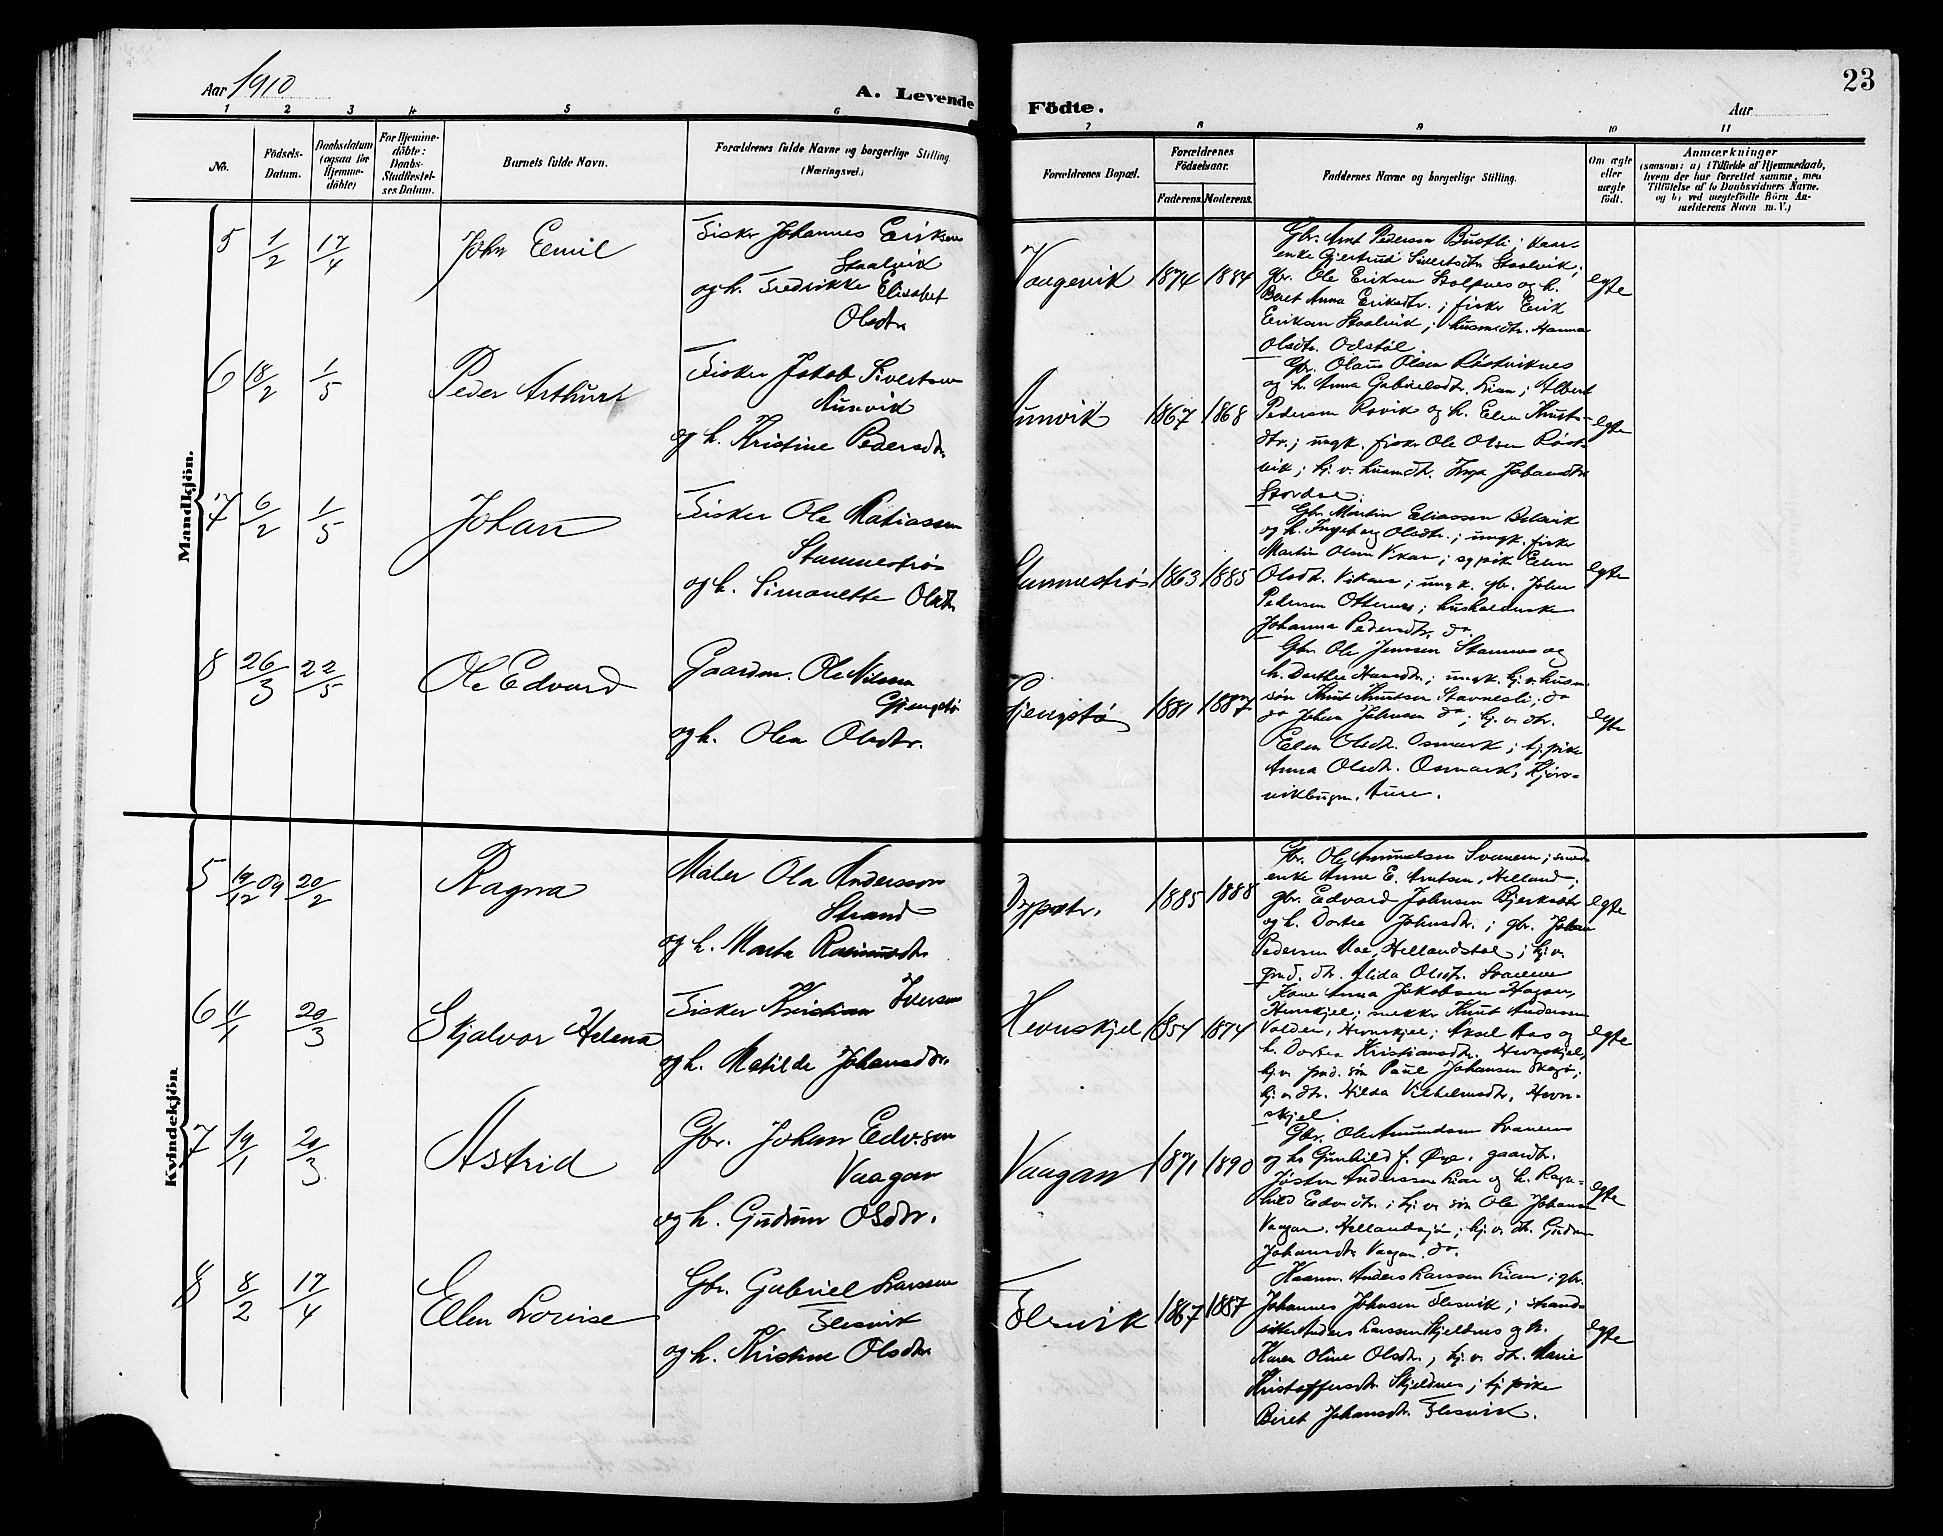 23
Aar 1910
A. Levende Födte.
Aar
1 2 3 4 5 6 7 8 9 10 11
No.
Födsels-
Datum.
Daabsdatum
(ogsaa för
Hjemme-
döbte)
For Hjemme-
döbte:
Daabs-
Stadfæstel-
ses Datum.
Barnets fulde Navn.
Forældrenes fulde Navne og borgerlige Stilling
(Næringsvei.)
Forældrenes Bopæl.
Forældrenes
Födselsaar.
Faderens. Moderens.
Faddernes Navne og borgerlige Stilling.
Om ægte
eller
uægte
födt.
Anmærkninger
(saasom: a) i Tilfælde af Hjemmedaab,
hvem der har forrettet samme, med
Tilföielse af to Daabsvidners Navne.
og b) ved uægtefödte Börn An-
melderens Navn m. V.)
Mandkjön.
5 1/2 17/4 John Emil
Fisker Johannes Eriksen
Staalvik
og h. Fredrikke Elisabet
Olsdtr
Vaagevik 1874 1884
Gbr. Arnt Pedersen Bustli; kaar-
enke Gjertrud Sivertsdtr. Staalvik;
gbr. Ole Eriksen Stolpnes og h.
Beret Anna Eriksdtr.; fisker Erik
Eriksen Staalvik; husmdtr. Hanna
Olsdtr. Odstøl.
egte
6 18/2 1/5 Peder Arthur
Fisker Jakob Sivertsen
Aunvik
og h. Kristine Pedersdtr.
Aunvik 1867 1868
Gbr. Olaus Olsen Røstviknes
og h. Anna Gabrielsdtr. Lian; Albert
Pedersen Rovik og h. Elen Knuts-
dtr.; ungk. fisker Ole Olsen Røst-
vik; hj. v. husmdtr. Inga Johansdtr
Stordal.
egte
7 6/2 1/5 Johan
Fisker Ole Matiassen
Stammestrøs
og h. Simonette Olsdtr
Stammestrøs 1863 1885
Gbr. Martin Eliassen Belsvik
og h. Ingeborg Olsdtr.; ungk. fisker
Martin Olsen Vikan; sypike Elen
Olsdtr. Vikan; ungk. gbr. Johan
Pedersen Otternes; husholderske
Johanna Pedersdtr. do
egte
8 26/3 22/5 Ole Edvard
Gaardm. Ole Nilsen
Gjengstø
og h. Olea Olsdtr.
Gjengstø 1881 1887
Gbr. Ole Jenssen Stamnes og
h. Dorthea Hansdtr.; ungk. hj. v. husm
søn Knut Knutsen Stavnesli; do
do Johan Johnsen do; hj. v. dtr.
Elen Olsdtr. Osmark; hj. pike
Anna Olsdtr. Osmark, Kjørs-
vikbugen. Aure.
egte
Kvindekjön
5 19/12 09 20/2 Ragna
Maler Ola Andersson
Strand
og h. Marta Rasmusdtr
Dypetr. 1885 1888
Gbr. Ole Amundsen Svanem; smed-
enke Anne E. Arntsen, Helland;
gbr. Edvard Johnsen Bjerksæter
og h. Dortea Johnsdtr.; gbr. Johan
Pedersen Moe, Hellandstal; hj. v.
grd. dtr. Alida Olsdtr. Svanem
egte
6 11/1 20/3 Skjalvor Helena
Fisker Kristian Iversen
og h. Matilde Johansdtr.
Hevnskjel 1854 1874
Kone Anna Jakobsen Hagen,
Hevnskjel; snekker Knut Andersen
Volden, Hevnskjel; Aksel Aas og
h. Dortea Kristiansdtr. Hevnskjel,
hj. v. grd. søn Paul Johansen Skogø;
hj. v. dtr. Hilda Vilhelmsdtr. Hevn-
skjel.
egte
7 19/1 20/3 Astrid
Gbr. Johan Edv.sen
Vaagan
og h. Gudrun Olsdtr.
Vaagan 1871 1890
Gbr. Ole Amundsen Svanem
og h. Gunhild f. Øye. gaardbr.
Jøsten Andersen Lian og h. Ragn-
hild Edv.dtr.; hj. v. søn Ole Johansen
Vaagan, Hellandsjø; hj. v. dtr. Gudrun
Johansdtr. Vaagan. do.
egte
8 8/2 17/4 Elen Lovise
Gbr. Gabriel Larsen
Flesvik
og h. Kristine Olsdtr.
Flesvik 1867 1887
Kaarm. Anders Larssen Lian; gbr.
Johannes Johnsen Flesvik; strand-
sitter Anders Larssen Skjeldnes og h.
Karen Oline Olsdtr., hj. v. dtr. Marie
Kristoffersdtr. Skjeldnes; hj. pike
Beret Johansdtr. Flesvik.
egte